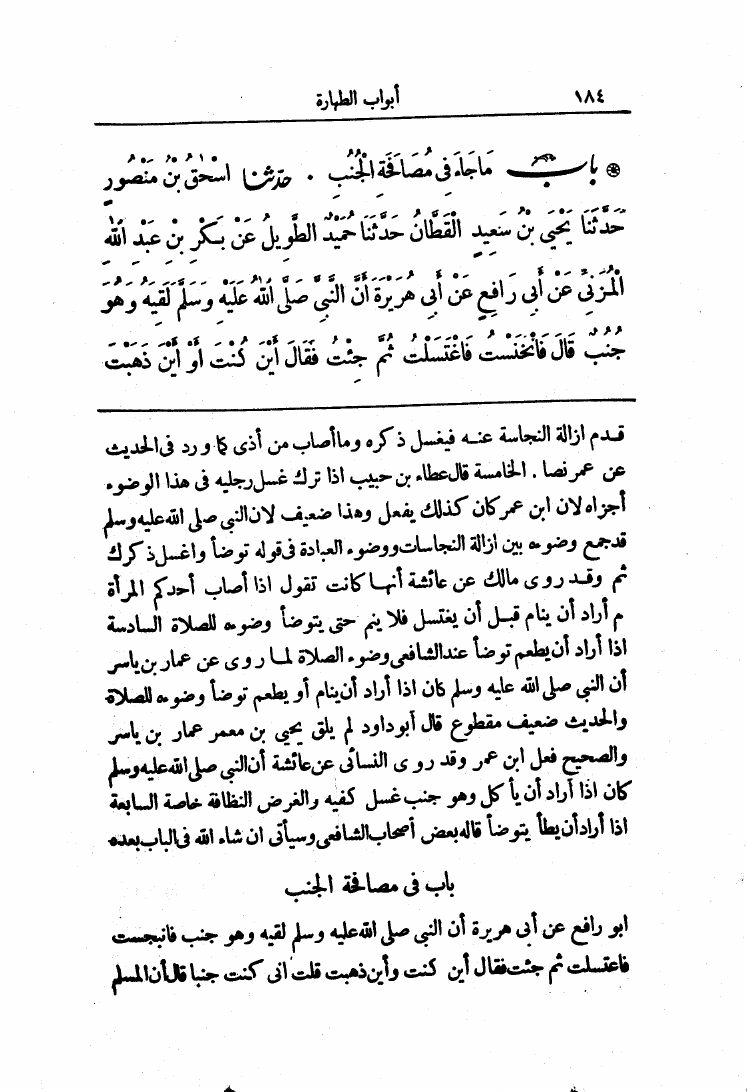 ١٨٤ أبواب الطهارة
باب مَا جَاءَ فِى مُصَافَحَةِ الْجُنُبِ . حدّثنا اسْحٰقُ بْنُ مَنْصُورٍ
حَدَّثَنَا يَحْيَى بْنُ سَعِيدٍ الْقَطَّانُ حَدَّثَنَا حُمَيْدٌ الطَّوِيلُ عَنْ بَكْرِ بْنِ عَبْدِ اللهِ
الْمُزَنِىِّ عَنْ أَبِى رَافِعٍ عَنْ أَبِى هُرَيْرَةَ أَنَّ النَّبِىَّ صَلَّى اللهُ عَلَيْهِ وَسَلَّمَ لَقِيَهُ وَهُوَ
جُنُبٌ قَالَ فَانْخَنَسْتُ فَاغْتَسَلْتُ ثُمَّ جِئْتُ فَقَالَ أَيْنَ كُنْتَ أَوْ أَيْنَ ذَهَبْتَ
قدم ازالة النجاسة عنه فيغسل ذكره وما أصاب من أذى كما ورد فى الحديث
عن عمر نصا . الخامسة قال عطاء بن حبيب اذا ترك غسل رجليه فى هذا الوضوء
أجزاه لان ابن عمر كان كذلك يفعل وهذا ضعيف لان النبي صلى الله عليه وسلم
قد جمع وضوءه بين ازالة النجاسات ووضوء العبادة فى قوله توضأ واغسل ذكرك
ثم وقد روى مالك عن عائشة أنها كانت تقول اذا أصاب أحدكم المرأة
م أراد أن ينام قبل أن يغتسل فلا ينم حتى يتوضأ وضوءه للصلاة السادسة
اذا أراد أن يطعم توضأ عند الشافعى وضوء الصلاة لما روى عن عمار بن ياسر
أن النبي صلى الله عليه وسلم كان اذا أراد أن ينام أو يطعم توضأ وضوءه للصلاة
والحديث ضعيف مقطوع قال أبو داود لم يلق يحيى بن معمر عمار بن ياسر
والصحيح فعل ابن عمر وقد روى النسائى عن عائشة أن النبي صلى الله عليه وسلم
كان اذا أراد أن يأكل وهو جنب غسل كفيه والغرض النظافة خاصة السابعة
اذا أراد أن يطأ يتوضأ قاله بعض أصحاب الشافعى وسيأتى ان شاء الله فى الباب بعده
باب فى مصافحة الجنب
ابو رافع عن أبى هريرة أن النبي صلى الله عليه وسلم لقيه وهو جنب فانبجست
فاغتسلت ثم جئت فقال أين كنت وأين ذهبت قلت انى كنت جنبا قال أن المسلم